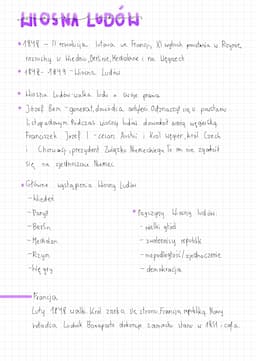 WIOSNA LUDÓW
• 1848 - II rewolucja lutowa we Francji, XI wybuch powstania w Rzymie,
rozruchy w Wiedniu, Berlinie, Mediolanie i na Węgrzech
• 1848 - 1849 - Wiosna Ludów
• Wiosna Ludów - walka ludu o swoje prawa
• Józef Bem - generał, dowódca artylerii. Odznaczył się w powstaniu
Listopadowym. Podczas wiosny ludów dowodził armią węgierską
Franciszek Józef I - cesarz Austrii i Król Węgier, król Czech
i Chorwacji, prezydent Związku Niemieckiego. To on nie zgodził
się na zjednoczenie Niemiec
• Główne wystąpienia Wiosny Ludów
- Wiedeń
- Paryż
- Berlin
- Mediolan
- Rzym
- Węgry
• Przyczyny Wiosny ludów:
- wielki głód
- zwolennicy republik
- niepodległość/zjednoczenie
- demokracja
Francja
Luty 1848 walki. Król zrzeka się stronu. Francja republiką. Nowy
władca Ludwik Bonaparte dokonuje zamachu stanu w 1851 i